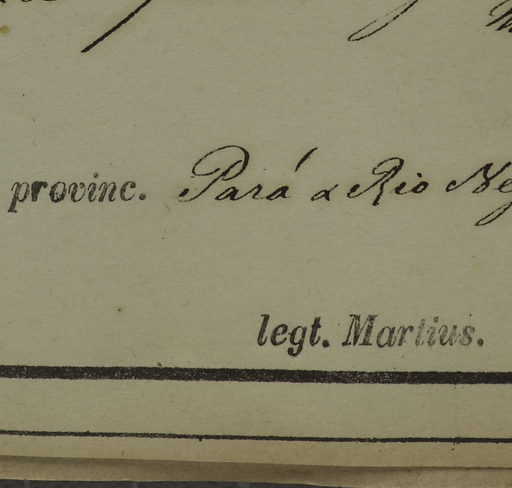 provinc. Pará & Rio Neg
legt. Martius.